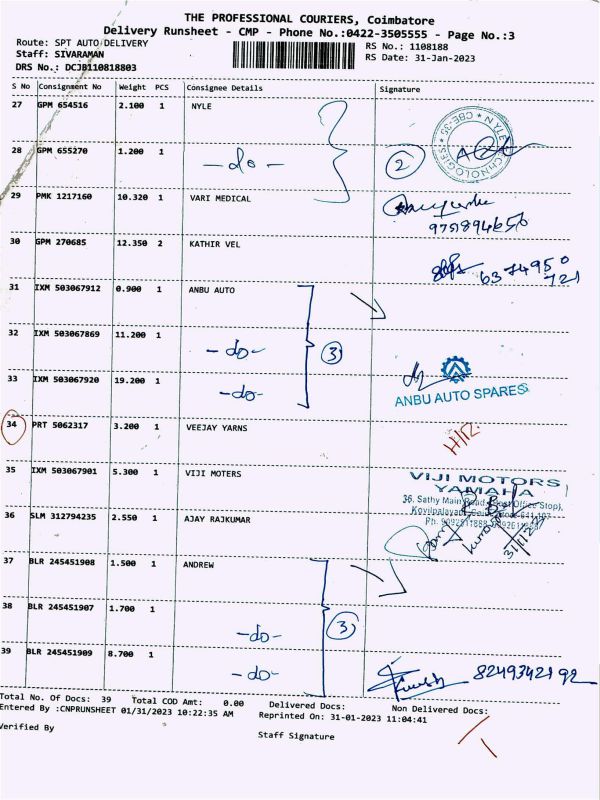 THE PROFESSIONAL COURIERS, Coimbatore
Delivery Runsheet - CMP - Phone No.:0422-3505555 - Page No.:3
Route: SPT AUTO DELIVERY
Staff: SIVARAMAN
DRS No.: DCJB110818803
RS No.: 1108188
RS Date: 31-Jan-2023
S No Consignment No Weight PCS Consignee Details Signature
27 GPM 654516 2.100 1 NYLE
28 GPM 655270 1.200 1 -do- 2
29 PMK 1217160 10.320 1 VARI MEDICAL
30 GPM 270685 12.350 2 KATHIR VEL
6374950
721
31 IXM 503067912 0.900 1 ANBU AUTO
32 IXM 503067869 11.200 1 -do- 3
33 IXM 503067920 19.200 1 -do-
ANBU AUTO SPARES
34 PRT 5062317 3.200 1 VEEJAY YARNS
35 IXM 503067901 5.300 1 VIJI MOTERS
VIJI MOTORS
YAMAHA
36, Sathy Main Road, (Post Office Stop),
36 SLM 312794235 2.550 1 AJAY RAJKUMAR
37 BLR 245451908 1.500 1 ANDREW
38 BLR 245451907 1.700 1 -do- 3
39 BLR 245451909 8.700 1 -do- 8249342192
Total No. Of Docs: 39 Total COD Amt: 0.00 Delivered Docs: Non Delivered Docs:
Entered By :CNPRUNSHEET 01/31/2023 10:22:35 AM Reprinted On: 31-01-2023 11:04:41
Verified By
Staff Signature